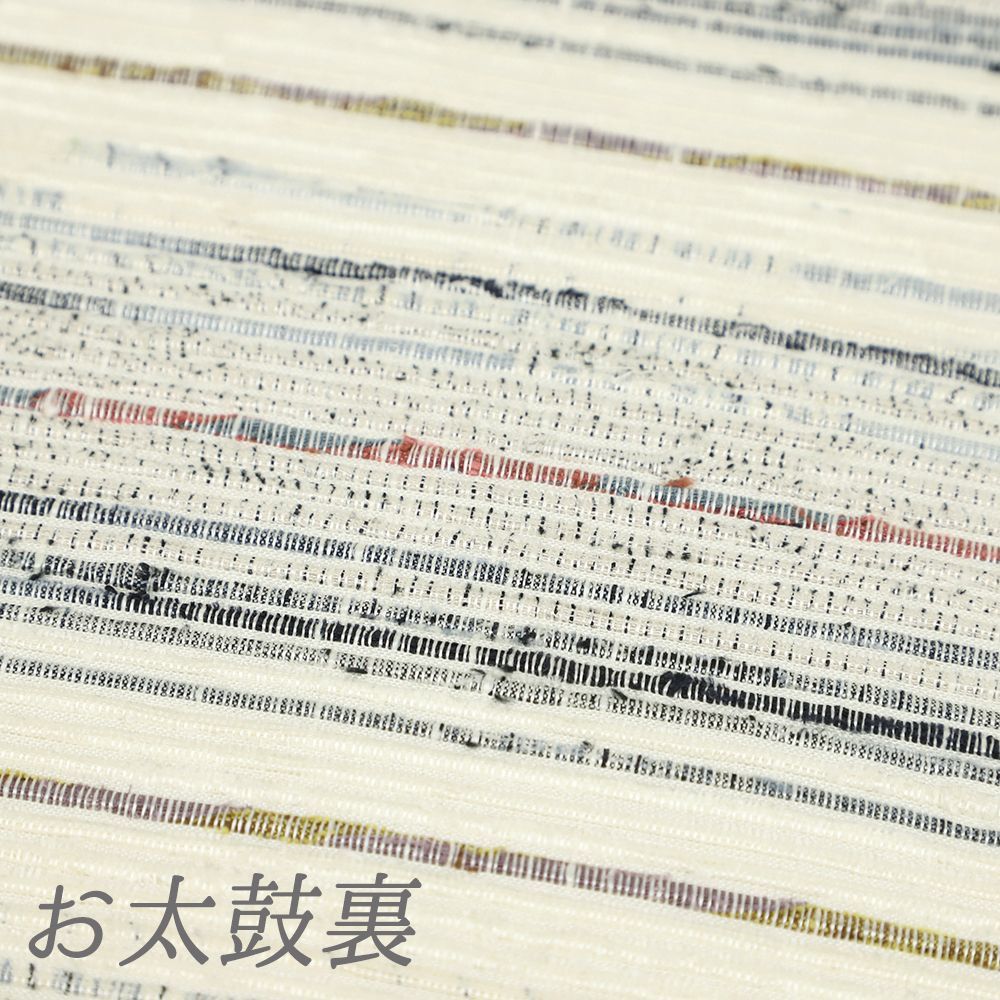 お太鼓裏